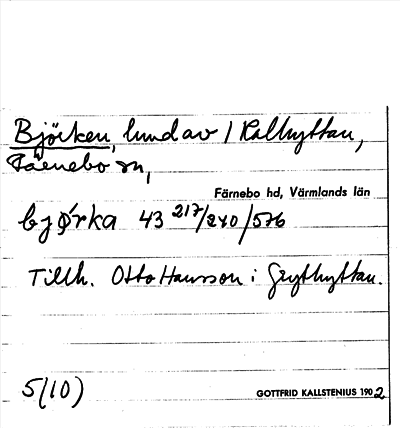 Björken, lund av 1 Kalhyttan,
Färnebo sn,
Färnebo hd, Värmlands län
bjǿrka 43 217/240/576
Tillh. Otto Hansson i Grythyttan.
5(10)
GOTTFRID KALLSTENIUS 1902